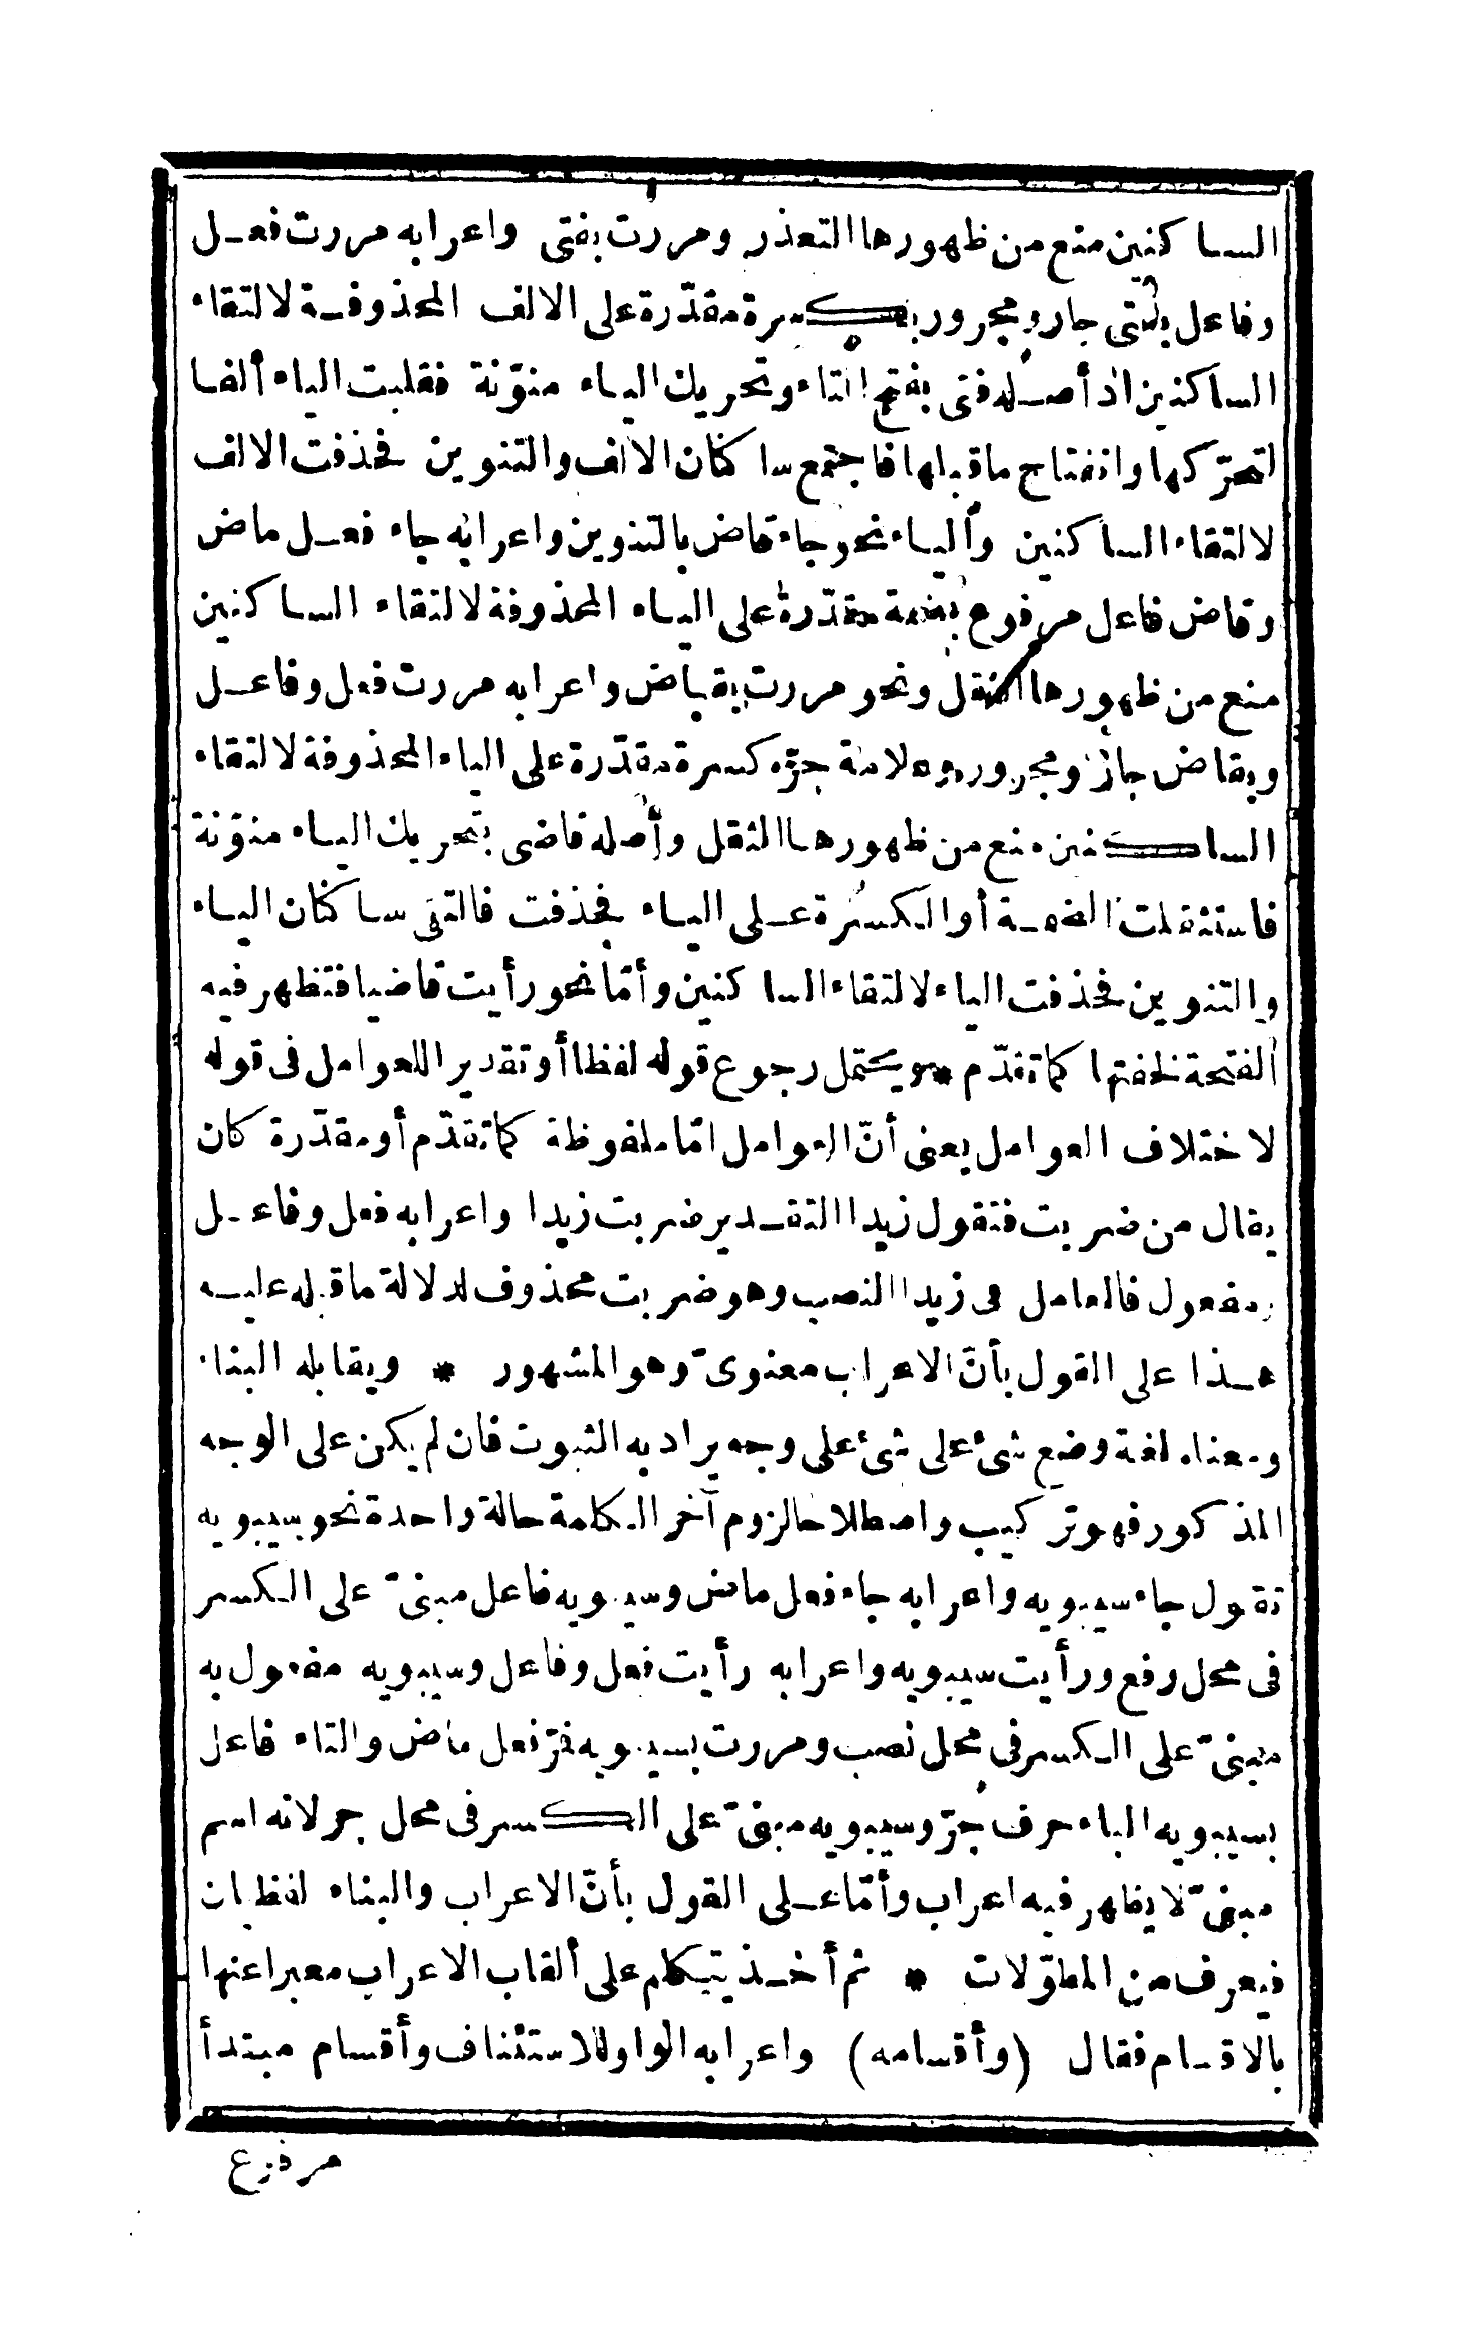 الساكنين منع من ظهورها التعذر ومررت بفتى واعرابه مررت فعل
وفاعل بفتى جار ومجرور بكسرة مقدّرة على الالف المحذوفة لالتقاء
الساكنين اذ أصله فتى بفتح التاء وتحريك الياء منوّنة فقلبت الياء ألفا
لتحرّكها وانفتاح ماقبلها فاجتمع ساكنان الالف والتنوين فحذفت الالف
لالتقاء الساكنين والياء نحو جاء قاض بالتنوين واعرابه جاء فعل ماض
وقاض فاعل مرفوع بضمة مقدّرة على الياء المحذوفة لالتقاء الساكنين
منع من ظهورها الثقل ونحو مررت بقاض واعرابه مررت فعل وفاعل
وبقاض جارّ ومجرور وعلامة جرّه كسرة مقدّرة على الياء المحذوفة لالتقاء
الساكنين منع من ظهورها الثقل وأصله قاضى بتحريك الياء منوّنة
فاستثقلت الضمة أو الكسرة على الياء فحذفت فالتقى ساكنان الياء
والتنوين فحذفت الياء لالتقاء الساكنين وأمّا نحو رأيت قاضيا فتظهر فيه
الفتحة لخفتها كما تقدّم * ويحتمل رجوع قوله لفظا أو تقديرا للعوامل فى قوله
لاختلاف العوامل يعنى أنّ العوامل امّا ملفوظة كما تقدّم أو مقدّرة كان
يقال من ضربت فتقول زيدا التقدير ضربت زيدا واعرابه فعل وفاعل
ومفعول فالعامل فى زيدا النصب وهو ضربت محذوف لدلالة ماقبله عليه
هذا على القول بأنّ الاعراب معنوىّ وهو المشهور * ويقابله البناء
ومعناه لغة وضع شئ على شئ على وجه يراد به الثبوت فان لم يكن على الوجه
المذكور فهو تركيب واصطلاحا لزوم آخر الكلمة حالة واحدة نحو سيبويه
تقول جاء سيبويه واعرابه جاء فعل ماض وسيبويه فاعل مبنىّ على الكسر
فى محل رفع ورأيت سيبويه واعرابه رأيت فعل وفاعل وسيبويه مفعول به
مبنىّ على الكسر فى محل نصب ومررت بسيبويه فمرّ فعل ماض والتاء فاعل
بسيبويه الباء حرف جرّ وسيبويه مبنىّ على الكسر فى محل جر لانه اسم
مبنىّ لا يظهر فيه اعراب وأمّا على القول بأنّ الاعراب والبناء لفظيان
فيعرف من المطوّلات * ثم أخذ يتكلم على ألقاب الاعراب معبرا عنها
بالاقسام فقال (وأقسامه) واعرابه الواو للاستئناف وأقسام مبتدأ
مرفوع